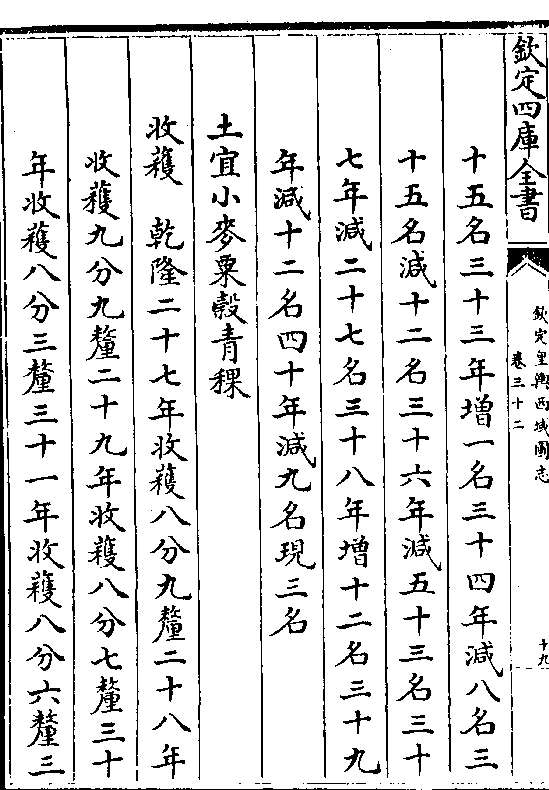 欽定四庫全書
欽定皇輿西域圖志
卷三十二
十九
十五名三十三年增一名三十四年減八名三
十五名減十二名三十六年減五十三名三十
七年減二十七名三十八年增十二名三十九
年減十二名四十年減九名現三名
土宜小麥粟穀青稞
收穫　乾隆二十七年收穫八分九釐二十八年
收穫九分九釐二十九年收穫八分七釐三十
年收穫八分三釐三十一年收穫八分六釐三